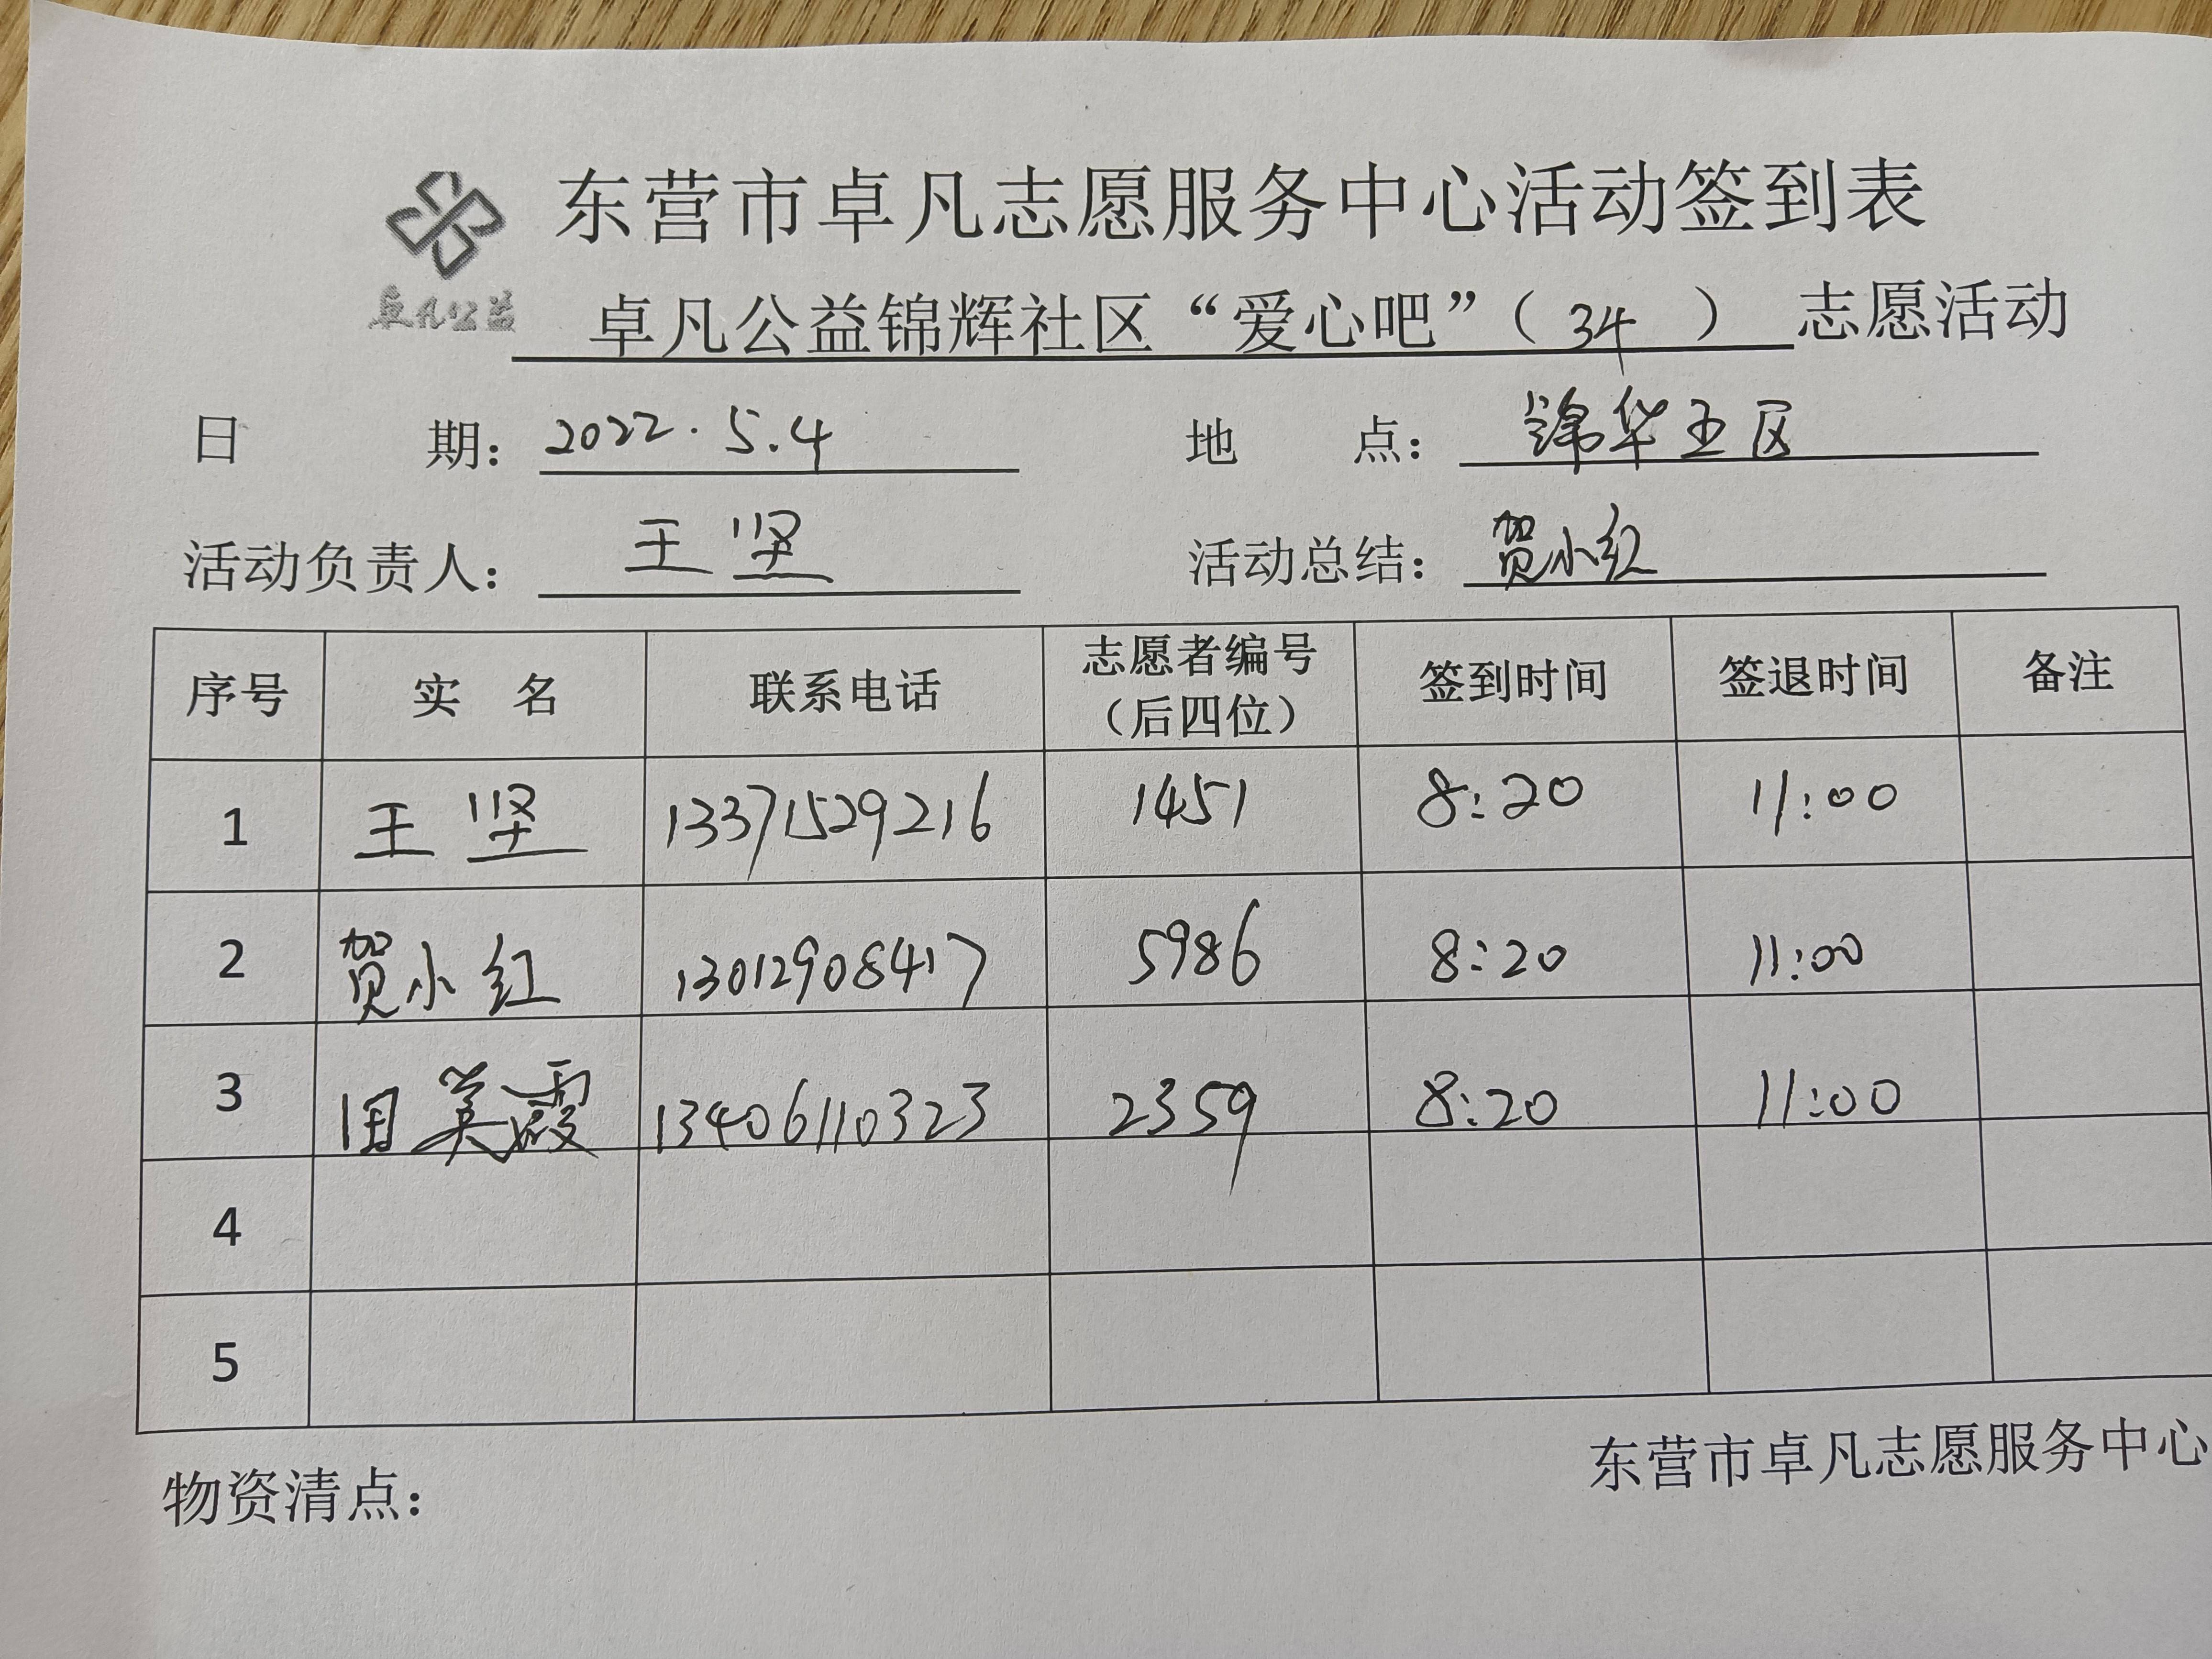 东营市卓凡志愿服务中心活动签到表
卓凡公益
卓凡公益锦辉社区“爱心吧”（34）志愿活动
日 期：2022.5.4 地 点：锦华五区
活动负责人：王坚 活动总结：贺小红
序号 实 名 联系电话 志愿者编号（后四位） 签到时间 签退时间 备注
1 王坚 13371529216 1451 8:20 11:00
2 贺小红 13012908417 5986 8:20 11:00
3 田英霞 13406110323 2359 8:20 11:00
4
5
东营市卓凡志愿服务中心
物资清点：